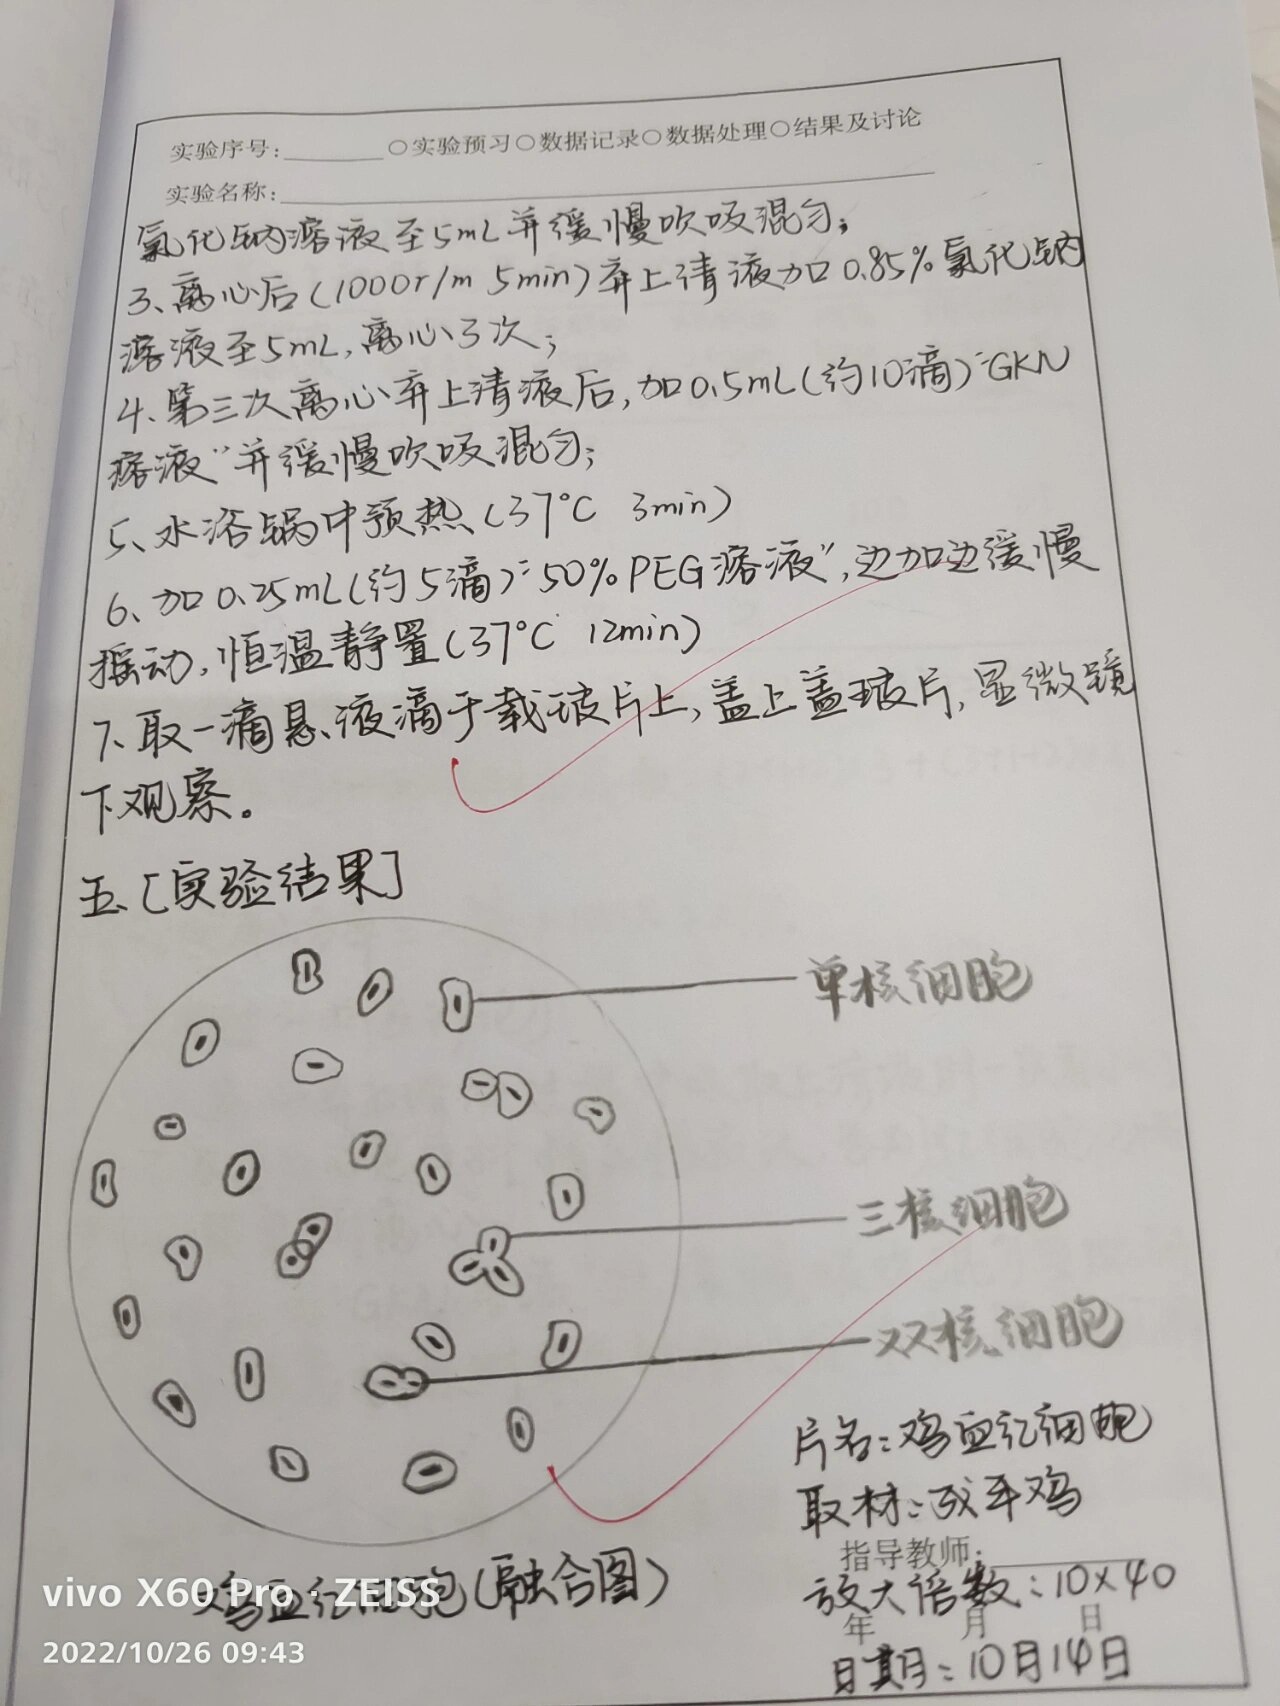 实验序号:________○实验预习○数据记录○数据处理○结果及讨论
实验名称:
氯化钠溶液至5mL并缓慢吹吸混匀;
3、离心后(1000r/m 5min)弃上清液加0.85%氯化钠
溶液至5mL,离心3次;
4、第三次离心弃上清液后,加0.5mL(约10滴)"GKN
溶液"并缓慢吹吸混匀;
5、水浴锅中预热(37°C 3min)
6、加0.25mL(约5滴)"50%PEG溶液",边加边缓慢
摇动,恒温静置(37°C 12min)
7、取一滴悬液滴于载玻片上,盖上盖玻片,显微镜
下观察。
五、[实验结果]
单核细胞
三核细胞
双核细胞
片名:鸡血红细胞
取材:成年鸡
指导教师:
放大倍数:10×40
年 月 日
日期:10月14日
鸡血红细胞(融合图)
vivo X60 Pro · ZEISS
2022/10/26 09:43